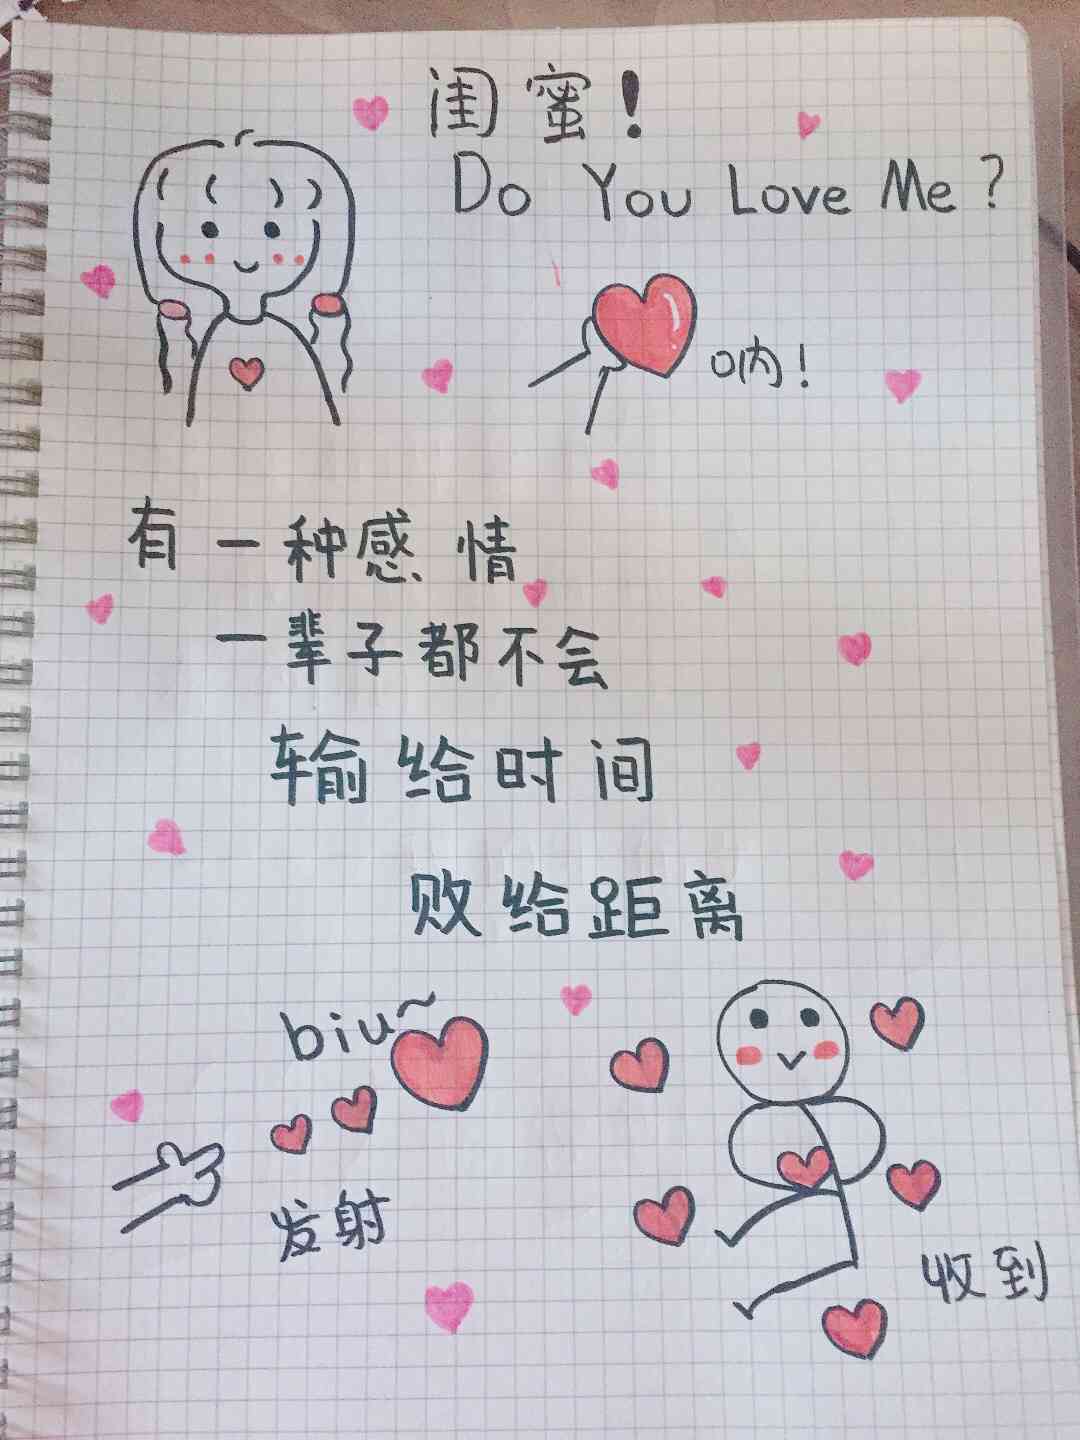 闺蜜!
Do You Love Me?
呐!
有一种感情
一辈子都不会
输给时间
败给距离
biu~
发射
收到